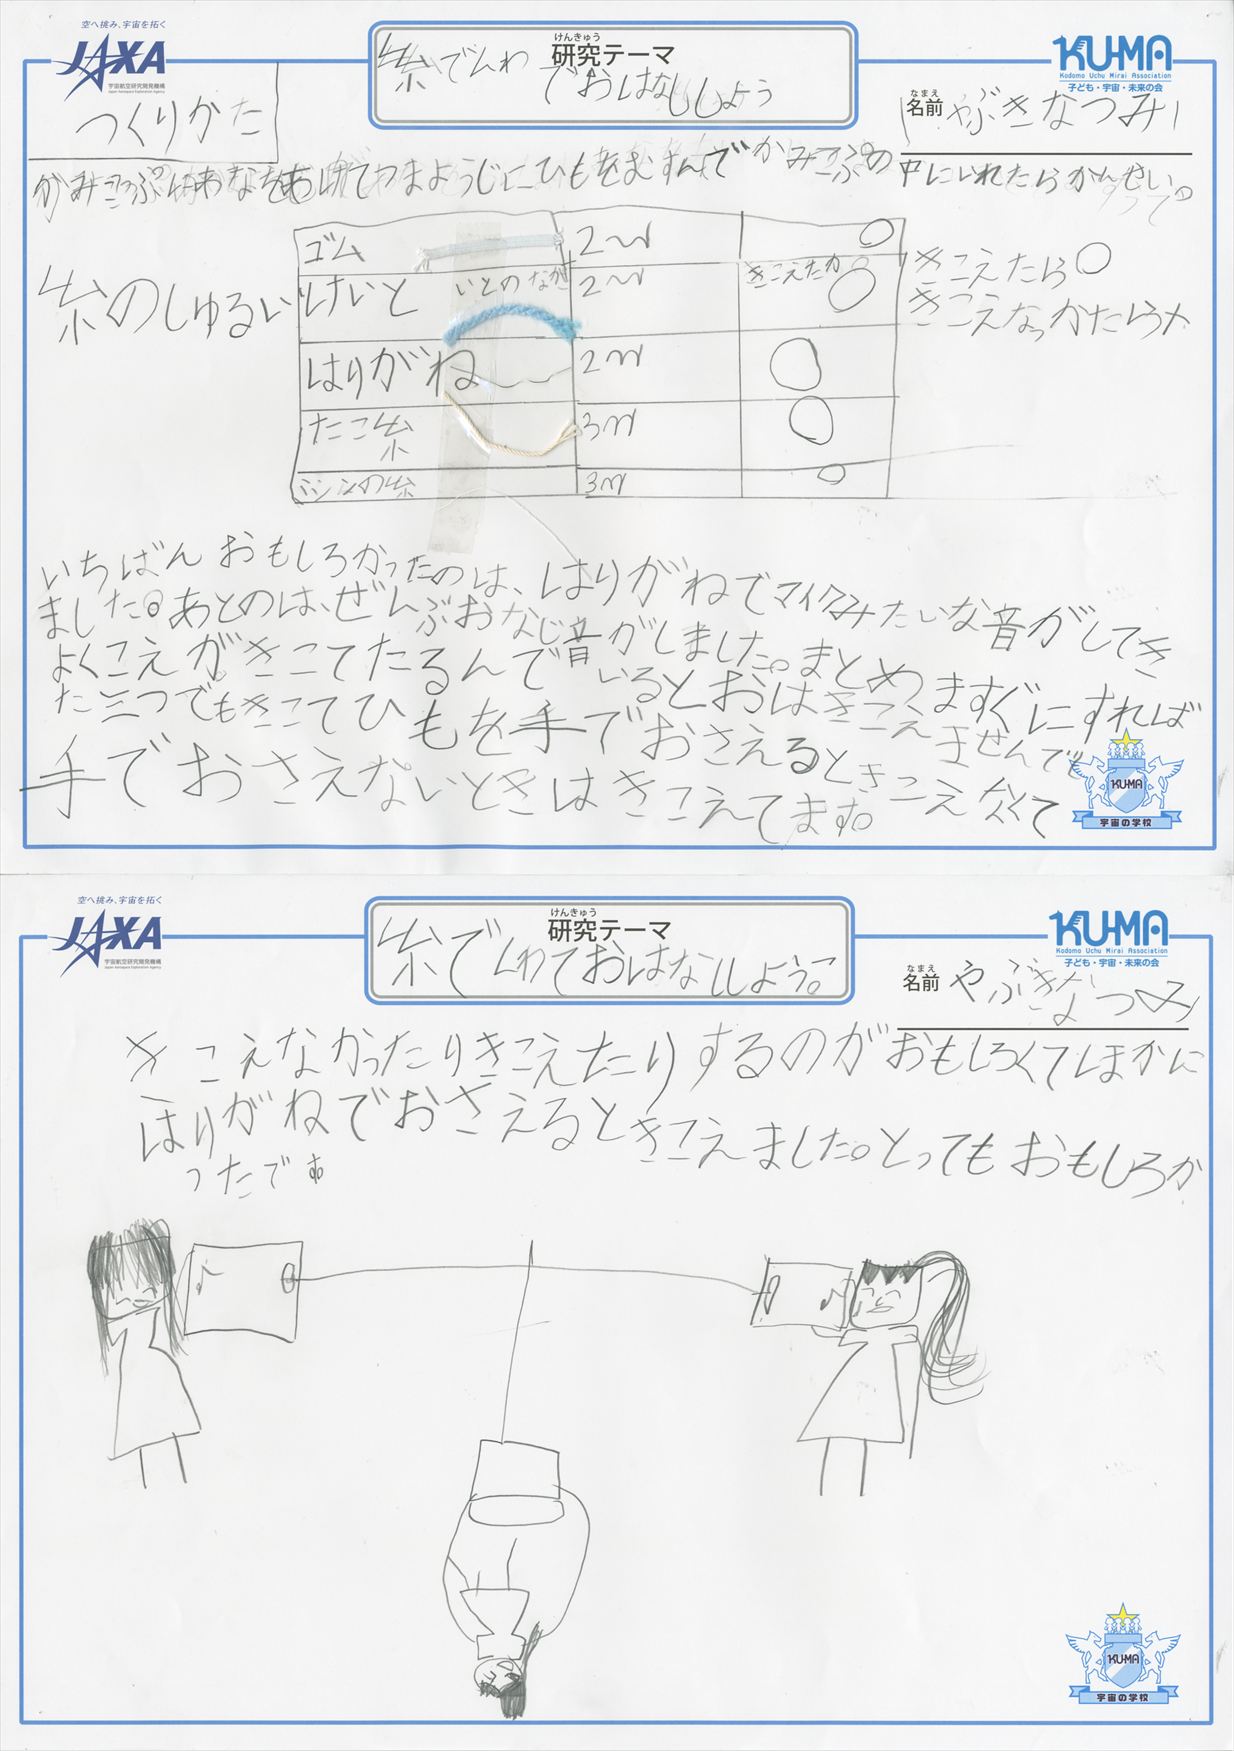 空へ挑み、宇宙を拓く
JAXA
宇宙航空研究開発機構
Japan Aerospace Exploration Agency
けんきゅう
研究テーマ
糸でんわ
でおはなししよう
KU-MA
Kodomo Uchu Mirai Association
子ども・宇宙・未来の会
なまえ
名前 やぶきなつみ
つくりかた
かみこっぷにあなをあけてつまようじにひもをむすんでかみこぷの中にいれたらかんせい。
糸のしゅるい
ゴム 2m ○
けいと いとのなが 2m きこえたか ○
はりがね 2m ○
たこ糸 3m ○
ミシンの糸 3m ○
きこえたら○
きこえなっかたら×
いちばんおもしろかったのは、はりがねでマイクみたいな音がしてき
ました。あとのは、ぜんぶおなじ音がしました。まとめ ますぐにすれば
よくこえがきこてたるんでいるとおはきこえませんで
た三つでもきこてひもを手でおさえるときこえなくて
手でおさえないときはきこえてます。
KU-MA
宇宙の学校
空へ挑み、宇宙を拓く
JAXA
宇宙航空研究開発機構
Japan Aerospace Exploration Agency
けんきゅう
研究テーマ
糸でんわでおはなししよう。
KU-MA
Kodomo Uchu Mirai Association
子ども・宇宙・未来の会
なまえ
名前 やぶきなつみ
きこえなかったりきこえたりするのがおもしろくてほかに
はりがねでおさえるときこえました。とってもおもしろか
ったです。
KU-MA
宇宙の学校